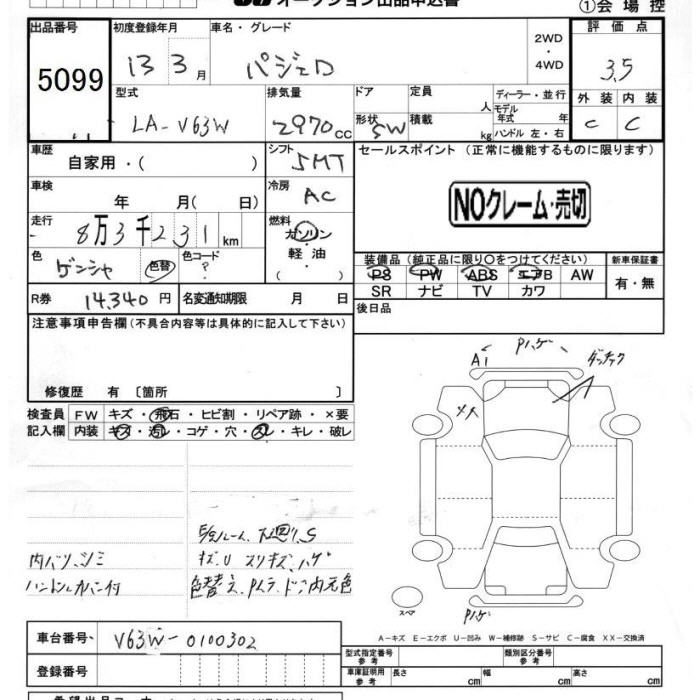 オークション出品申込書
①会場控
出品番号 初度登録年月 車名・グレード 評価点
5099 13 3月 パジェロ 2WD・4WD 3.5
型式 排気量 ドア 定員 人 ディーラー・並行 外装 内装
LA-V63W 2970cc 形状 SW 積載 kg モデル年式 年 ハンドル 左・右 C C
車歴 自家用・( ) シフト 5MT セールスポイント (正常に機能するものに限ります)
車検 年 月( 日) 冷房 AC NOクレーム・売切
走行 8万3千231km 燃料 ガソリン・軽油
色 ゲンシャ 色替 色コード ? ( ) 装備品(純正品に限り○をつけてください) 新車保証書
PS PW ABS エアB AW 有・無
R券 14,340円 名変通知期限 月 日 SR ナビ TV カワ
注意事項申告欄(不具合内容等は具体的に記入して下さい) 後日品
修復歴 有 〔箇所 〕
A1 Pハゲ ダッチャク
検査員 FW キズ・飛石・ヒビ割・リペア跡・×要
記入欄 内装 キズ・汚レ・コゲ・穴・スレ・キレ・破レ
下廻リ、S
内ハリ、シミ キズ、U スリキズ、ハゲ
ハンドルカバー付 色替え
スペア Pハゲ
A-キズ E-エクボ U-凹み W-補修跡 S-サビ C-腐食 XX-交換済
車台番号 V63W-0100302 型式指定番号 参考 類別区分番号 参考
登録番号 車庫証明用 参考 長さ cm 幅 cm 高さ cm
希望出品コーナー